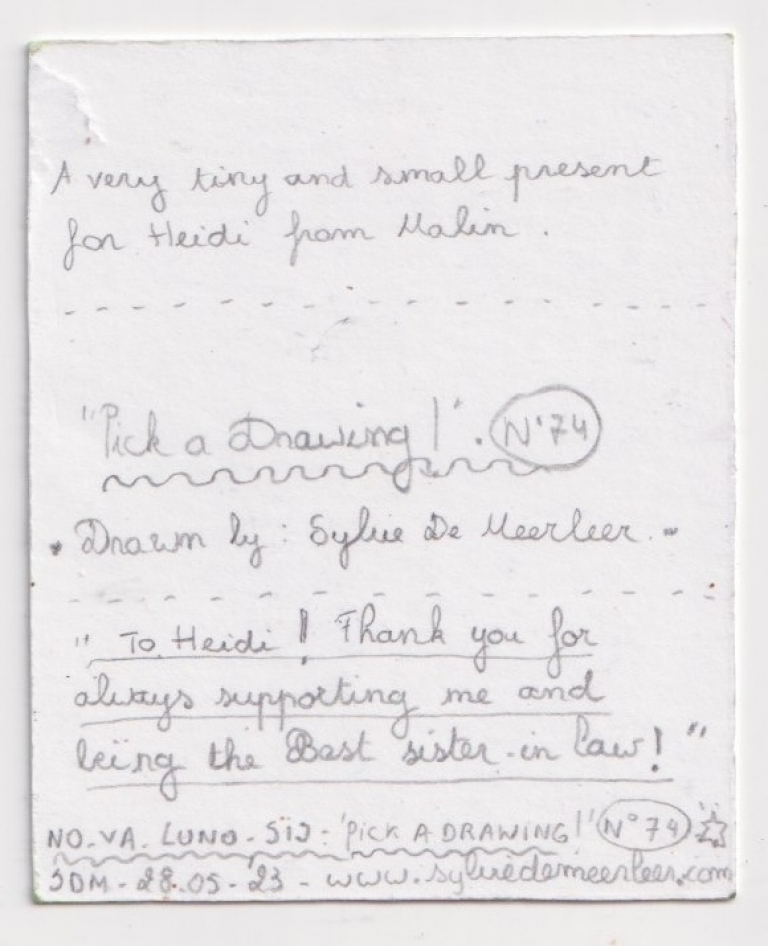 A very tiny and small present
for Heidi from Malin .
"Pick a Drawing!" . N°74
. Drawn by : Sylvie De Meerleer. -
" To Heidi ! Thank you for
always supporting me and
being the Best sister-in law! "
NO.VA. LUNO - SIJ - 'PICK A DRAWING!' N°74
SDM - 28.05-'23 - www.sylviedemeerleer.com